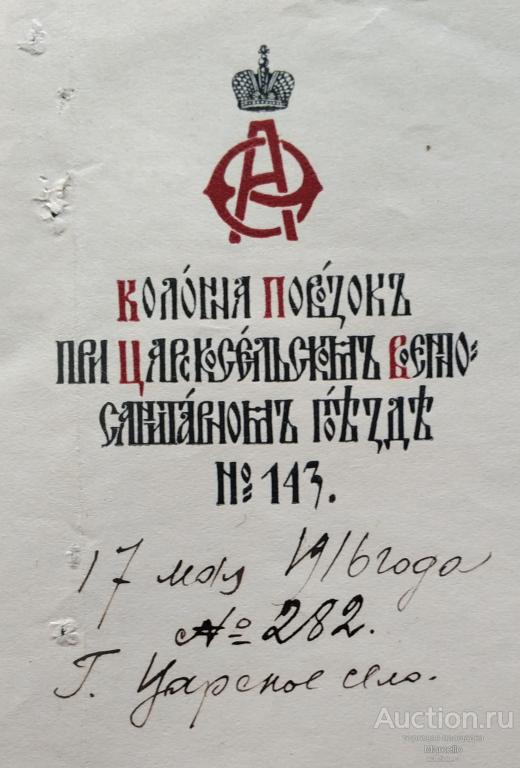 Колонія Повозокъ
при Царскосельскомъ Военно-
санитарномъ поѣздѣ
№ 143.
17 мая 1916 года
№ 282.
Г. Царское село.
Auction.ru
торговая площадка
Marcello